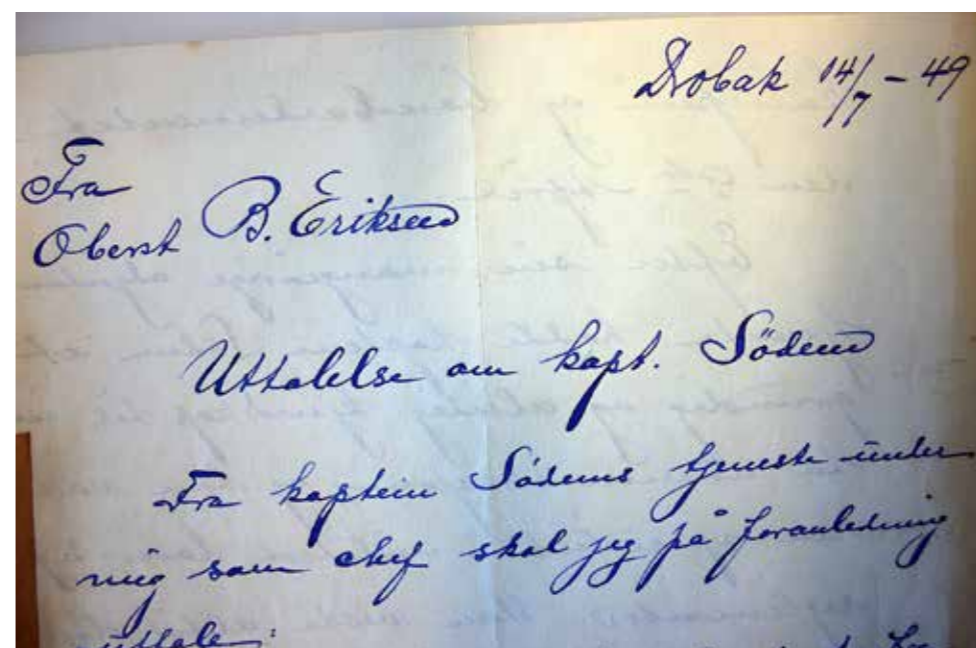 Drobak 14/7 - 49
Fra
Oberst B. Eriksen
Uttalelse om kapt. Södem
Fra kaptein Södems tjeneste under
mig som chef skal jeg på foranledning
uttale: